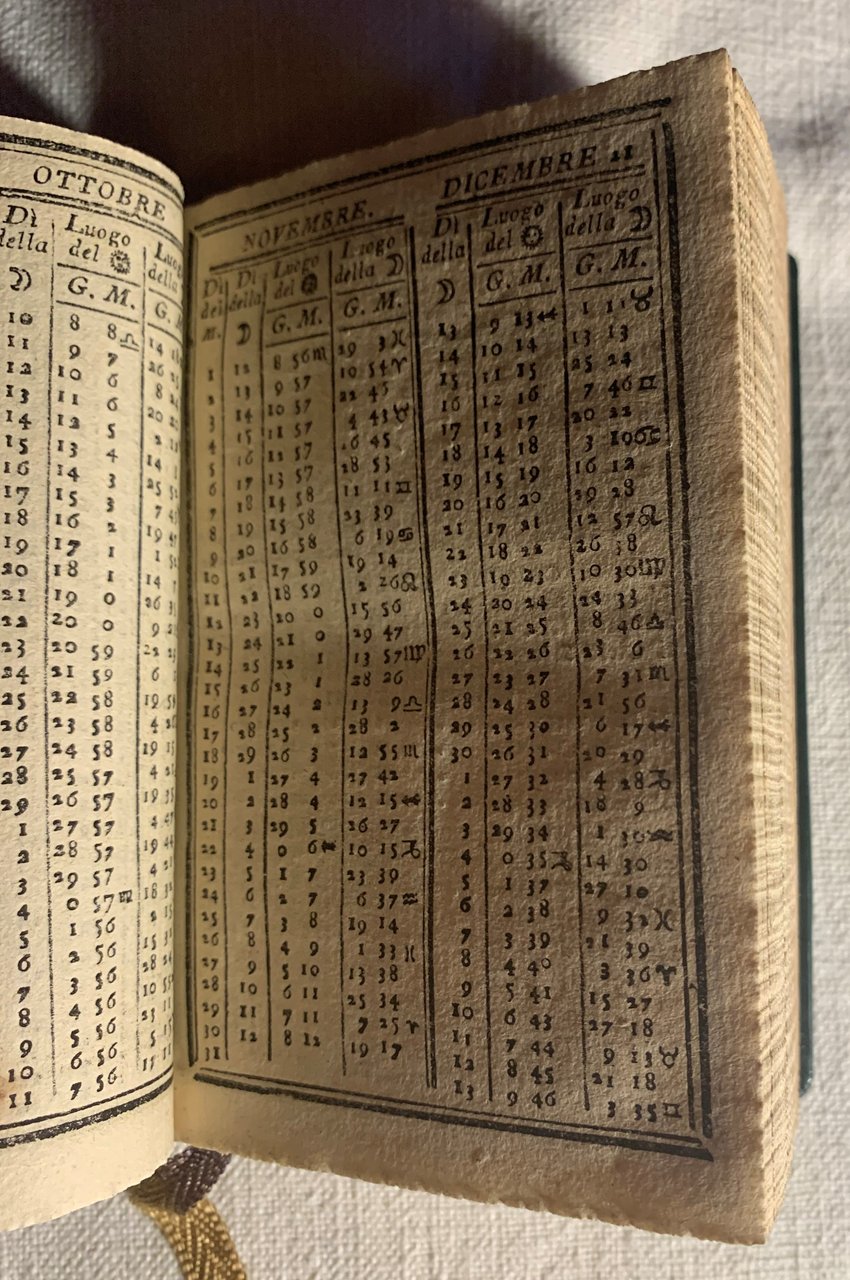 OTTOBRE
Dì Luogo
della del ☉ della
☽ G. M. G.
10 8 8♎ 14
11 9 7 26
12 10 6 8
13 11 6 20
14 12 5 2
15 13 4 14
16 14 3 25
17 15 3 7
18 16 2 19
19 17 1 1
20 18 1 14
21 19 0 26
22 20 0 9
23 20 59 22
24 21 59 6
25 22 58 19
26 23 58 4
27 24 58 19
28 25 57 4
29 26 57 19
1 27 57 4
2 28 57 19
3 29 57 4
4 0 57♏ 18
5 1 56 2
6 2 56 15
7 3 56 28
8 4 56 10
9 5 56 23
10 6 56 5
11 7 56
NOVEMBRE. DICEMBRE 21
Dì Dì Luogo Luogo Dì Luogo Luogo
del della del ☉ della ☽ della del ☉ della ☽
M. ☽ G. M. G. M. ☽ G. M. G. M.
1 12 8 56♏ 29 3♓ 13 9 13♐ 1 11♉
2 13 9 57 10 54♈ 14 10 14 13 13
3 14 10 57 22 45 15 11 15 25 24
4 15 11 57 4 43♉ 16 12 16 7 46♊
5 16 12 57 16 45 17 13 17 20 22
6 17 13 57 28 53 18 14 18 3 10♋
7 18 14 58 11 11♊ 19 15 19 16 12
8 19 15 58 23 39 20 16 20 29 28
9 20 16 58 6 19♋ 21 17 21 12 57♌
10 21 17 59 19 14 22 18 22 26 38
11 22 18 59 2 26♌ 23 19 23 10 30♍
12 23 20 0 15 56 24 20 24 24 33
13 24 21 0 29 47 25 21 25 8 46♎
14 25 22 1 13 57♍ 26 22 26 23 6
15 26 23 1 28 26 27 23 27 7 31♏
16 27 24 2 13 9♎ 28 24 28 21 56
17 28 25 2 28 2 29 25 30 6 17♐
18 29 26 3 12 55♏ 30 26 31 20 29
19 1 27 4 27 42 1 27 32 4 28♑
20 2 28 4 12 15♐ 2 28 33 18 9
21 3 29 5 26 27 3 29 34 1 30♒
22 4 0 6♐ 10 15♑ 4 0 35♑ 14 30
23 5 1 7 23 39 5 1 37 27 10
24 6 2 7 6 37♒ 6 2 38 9 32♓
25 7 3 8 19 14 7 3 39 21 39
26 8 4 9 1 33♓ 8 4 40 3 36♈
27 9 5 10 13 38 9 5 41 15 27
28 10 6 11 25 34 10 6 43 27 18
29 11 7 11 7 25♈ 11 7 44 9 13♉
30 12 8 12 19 17 12 8 45 21 18
31 13 9 46 3 35♊